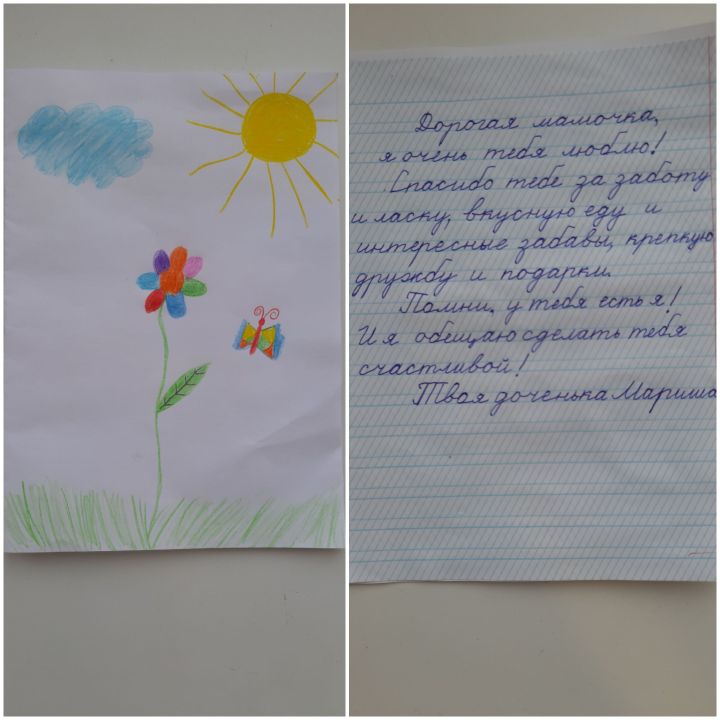 Дорогая мамочка,
я очень тебя люблю!
Спасибо тебе за заботу
и ласку, вкусную еду и
интересные забавы, крепкую
дружбу и подарки.
Помни, у тебя есть я!
И я обещаю сделать тебя
счастливой!
Твоя доченька Мариша